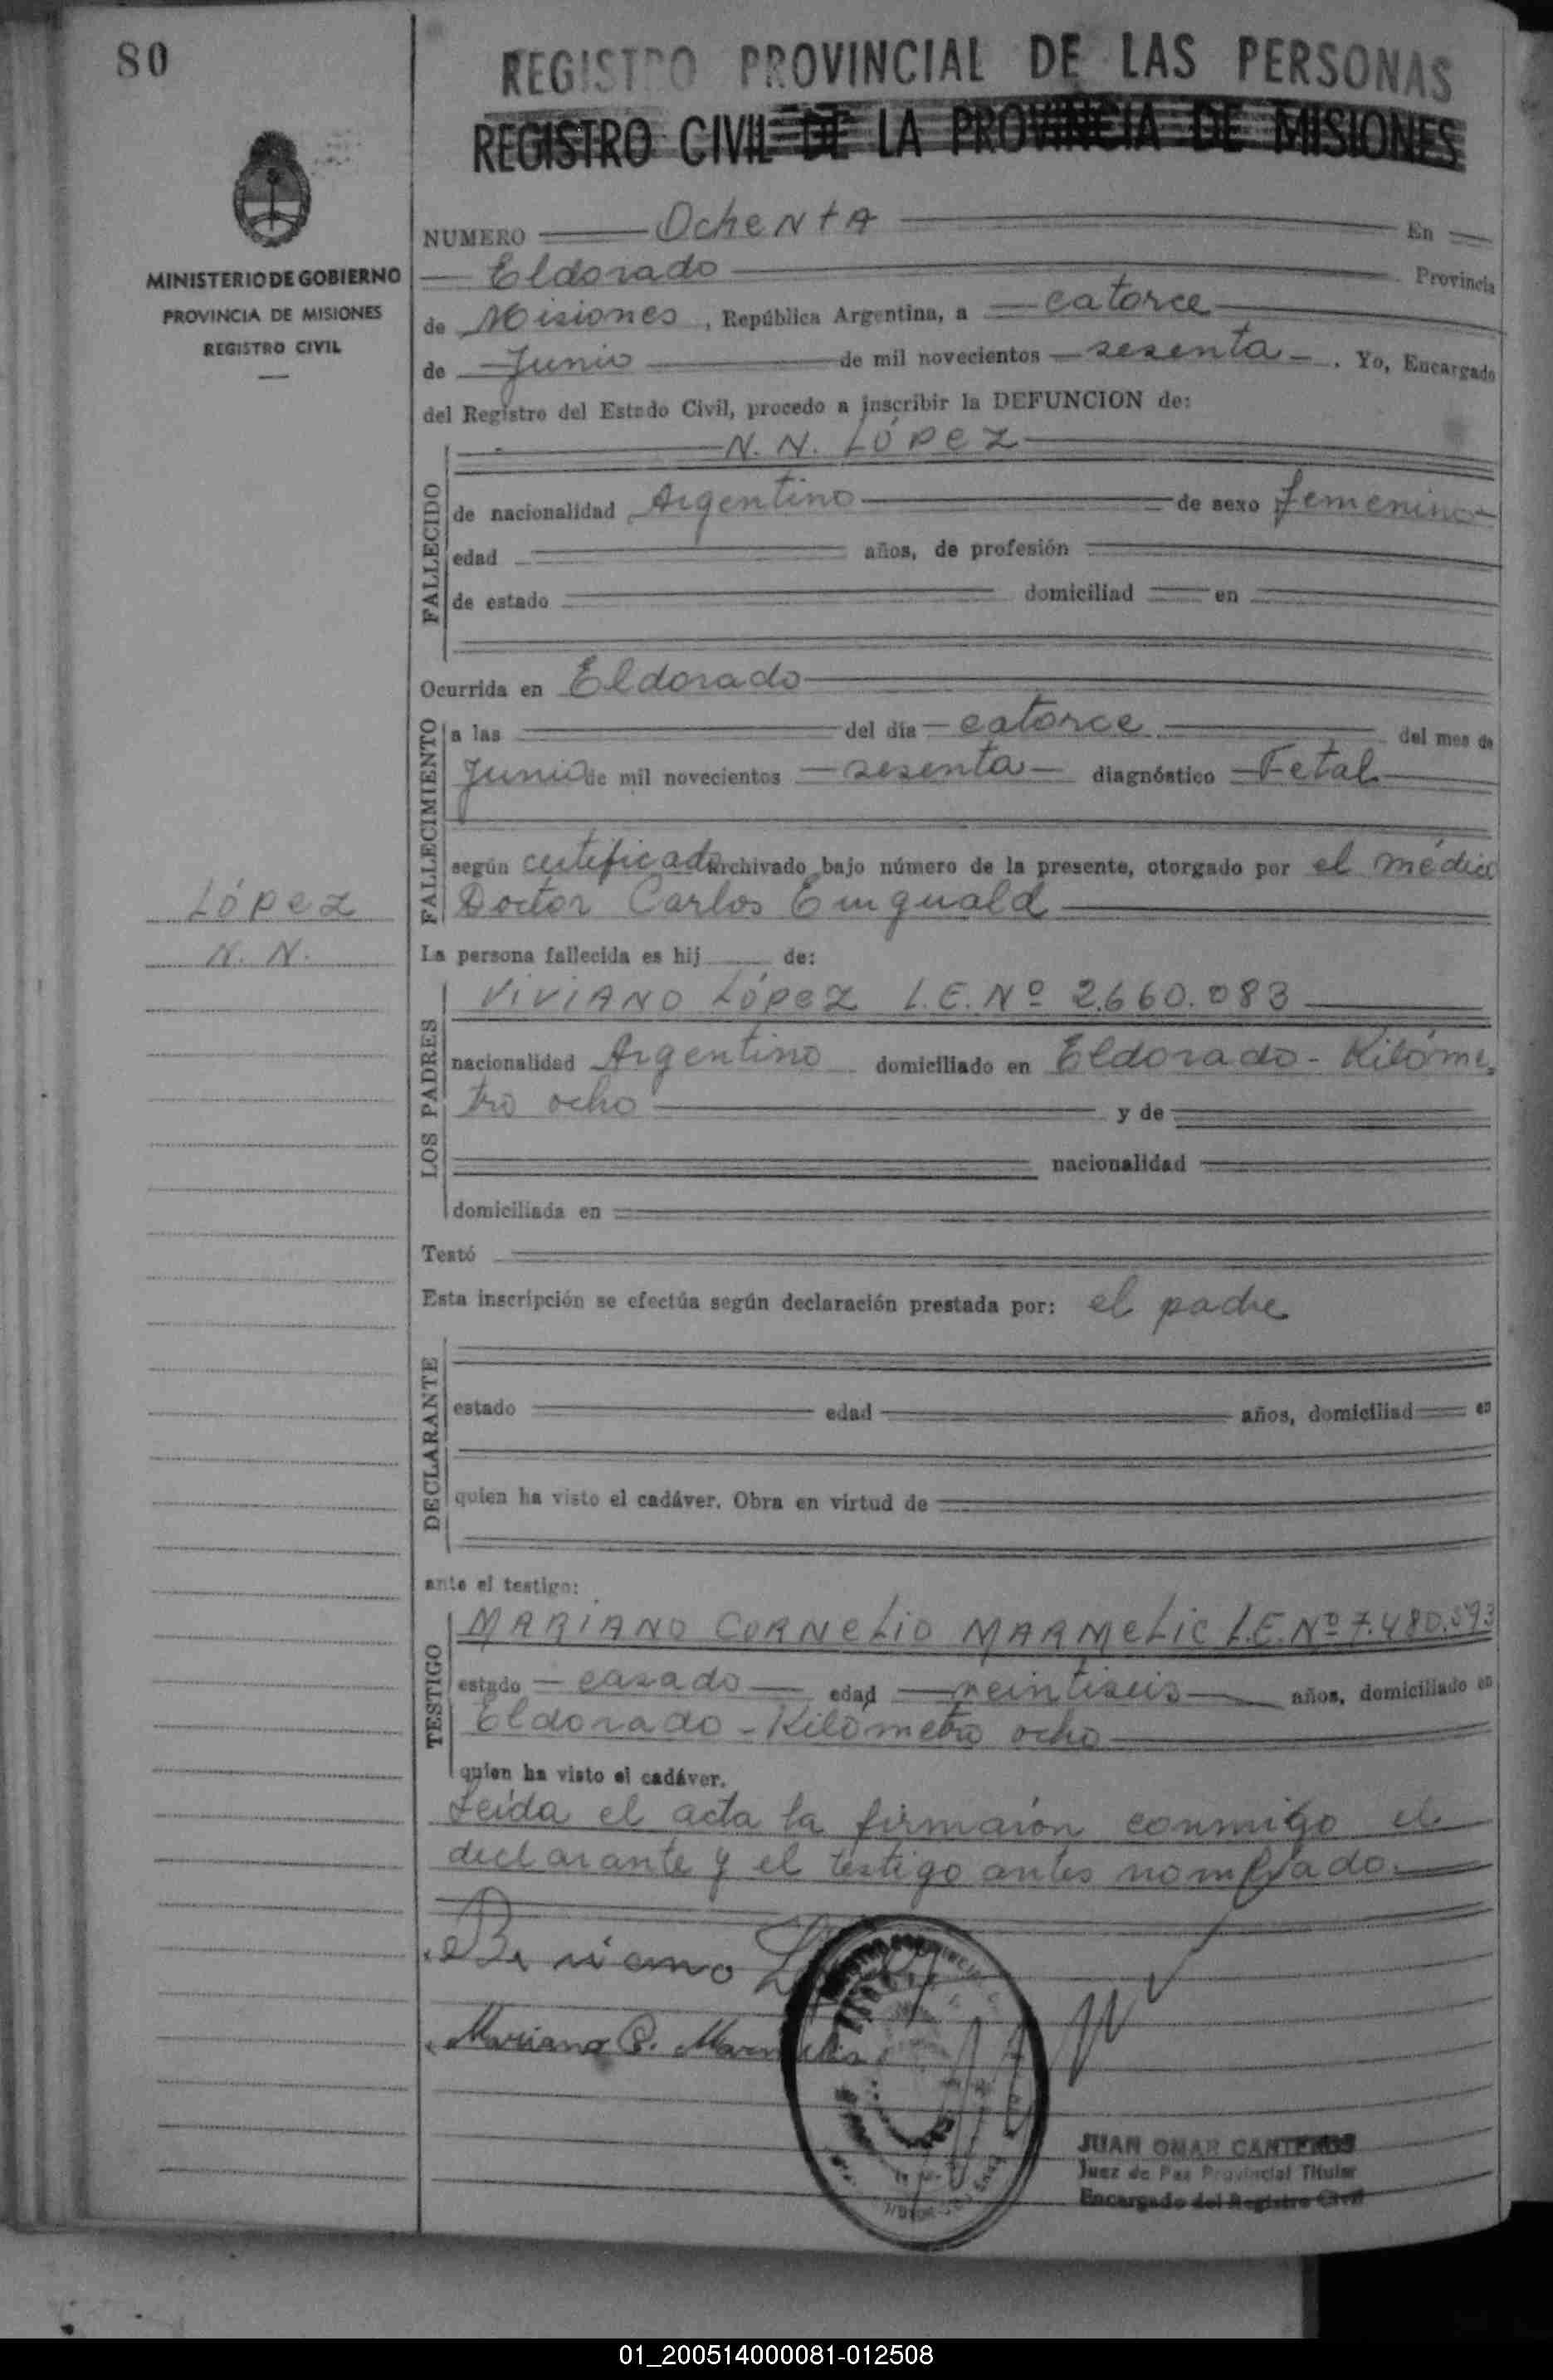 80
REGISTRO PROVINCIAL DE LAS PERSONAS
REGISTRO CIVIL DE LA PROVINCIA DE MISIONES
MINISTERIO DE GOBIERNO
PROVINCIA DE MISIONES
REGISTRO CIVIL
NUMERO OcheNtA En
Eldorado Provincia
de Misiones, República Argentina, a catorce
de Junio de mil novecientos sesenta. Yo, Encargado
del Registro del Estado Civil, procedo a inscribir la DEFUNCION de:
N. N. López
FALLECIDO
de nacionalidad Argentino de sexo femenino
edad años, de profesión
de estado domiciliad en
Ocurrida en Eldorado
FALLECIMIENTO
a las del día catorce del mes de
Junio de mil novecientos sesenta diagnóstico Fetal
según certificado archivado bajo número de la presente, otorgado por el médico
Doctor Carlos
López
N. N.
La persona fallecida es hij de:
LOS PADRES
ViViANO López L.E. Nº 2.660.083
nacionalidad Argentino domiciliado en Eldorado - Kilóme
tro ocho y de
nacionalidad
domiciliada en
Testó
Esta inscripción se efectúa según declaración prestada por: el padre
DECLARANTE
estado edad años, domiciliad en
quien ha visto el cadáver. Obra en virtud de
ante el testigo:
TESTIGO
MARIANO CORNeLio MARMeLic L.E. Nº 7.480.593
estado casado edad veintiseis años, domiciliado en
Eldorado - Kilómetro ocho
quien ha visto el cadáver.
Leída el acta la firmaron conmigo el
declarante y el testigo antes nombrado.
Mariano C. Marmelic
JUAN OMAR CANTEROS
Juez de Paz Provincial Titular
Encargado del Registro Civil
01_200514000081-012508